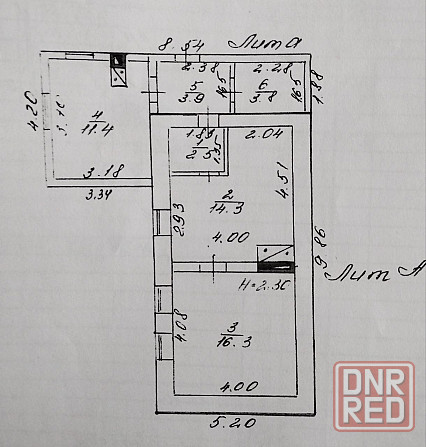 8.54
Лит а
2.38
5
3.9
1.65
2.28
6
3.8
1.65
1.88
4.20
4
11.4
3.18
3.34
1.83
1
2.5
1.35
2.04
2
14.3
4.51
2.93
4.00
9.86
Лит А
H=2.30
4.08
3
16.3
4.00
5.20
DNR
RED